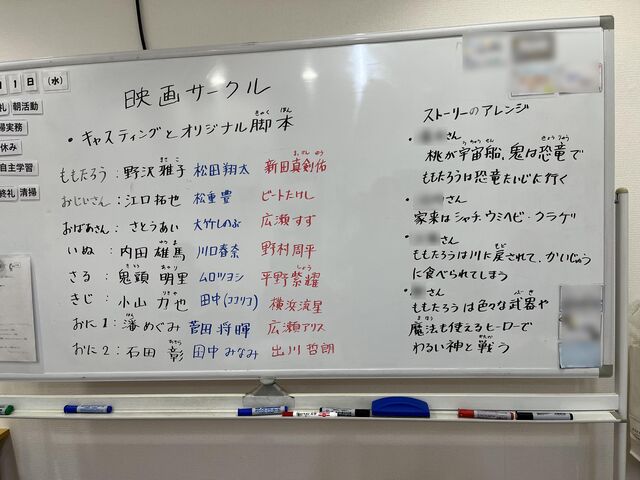 1日(水)
礼 朝活動
掃実務
休み
自主学習
終礼 清掃
映画サークル
・キャスティングとオリジナル脚本
きゃく ほん
ももたろう：野沢雅子 松田翔太 新田真剣佑
おじいさん：江口拓也 松重豊 ビートたけし
おばあさん：さとうあい 大竹しのぶ 広瀬すず
いぬ：内田雄馬 川口春奈 野村周平
さる：鬼頭明里 ムロツヨシ 平野紫耀
きじ：小山力也 田中(ココリコ) 横浜流星
おに1：潘めぐみ 菅田将暉 広瀬アリス
おに2：石田彰 田中みなみ 出川哲朗
ストーリーのアレンジ
・さん
桃が宇宙船、鬼は恐竜で
ももたろうは恐竜たいじに行く
・さん
家来はシャチ、ウミヘビ・クラゲ
・さん
ももたろうは川に戻されて、かいじゅう
に食べられてしまう
・さん
ももたろうは色々な武器や
魔法も使えるヒーローで
わるい神と戦う